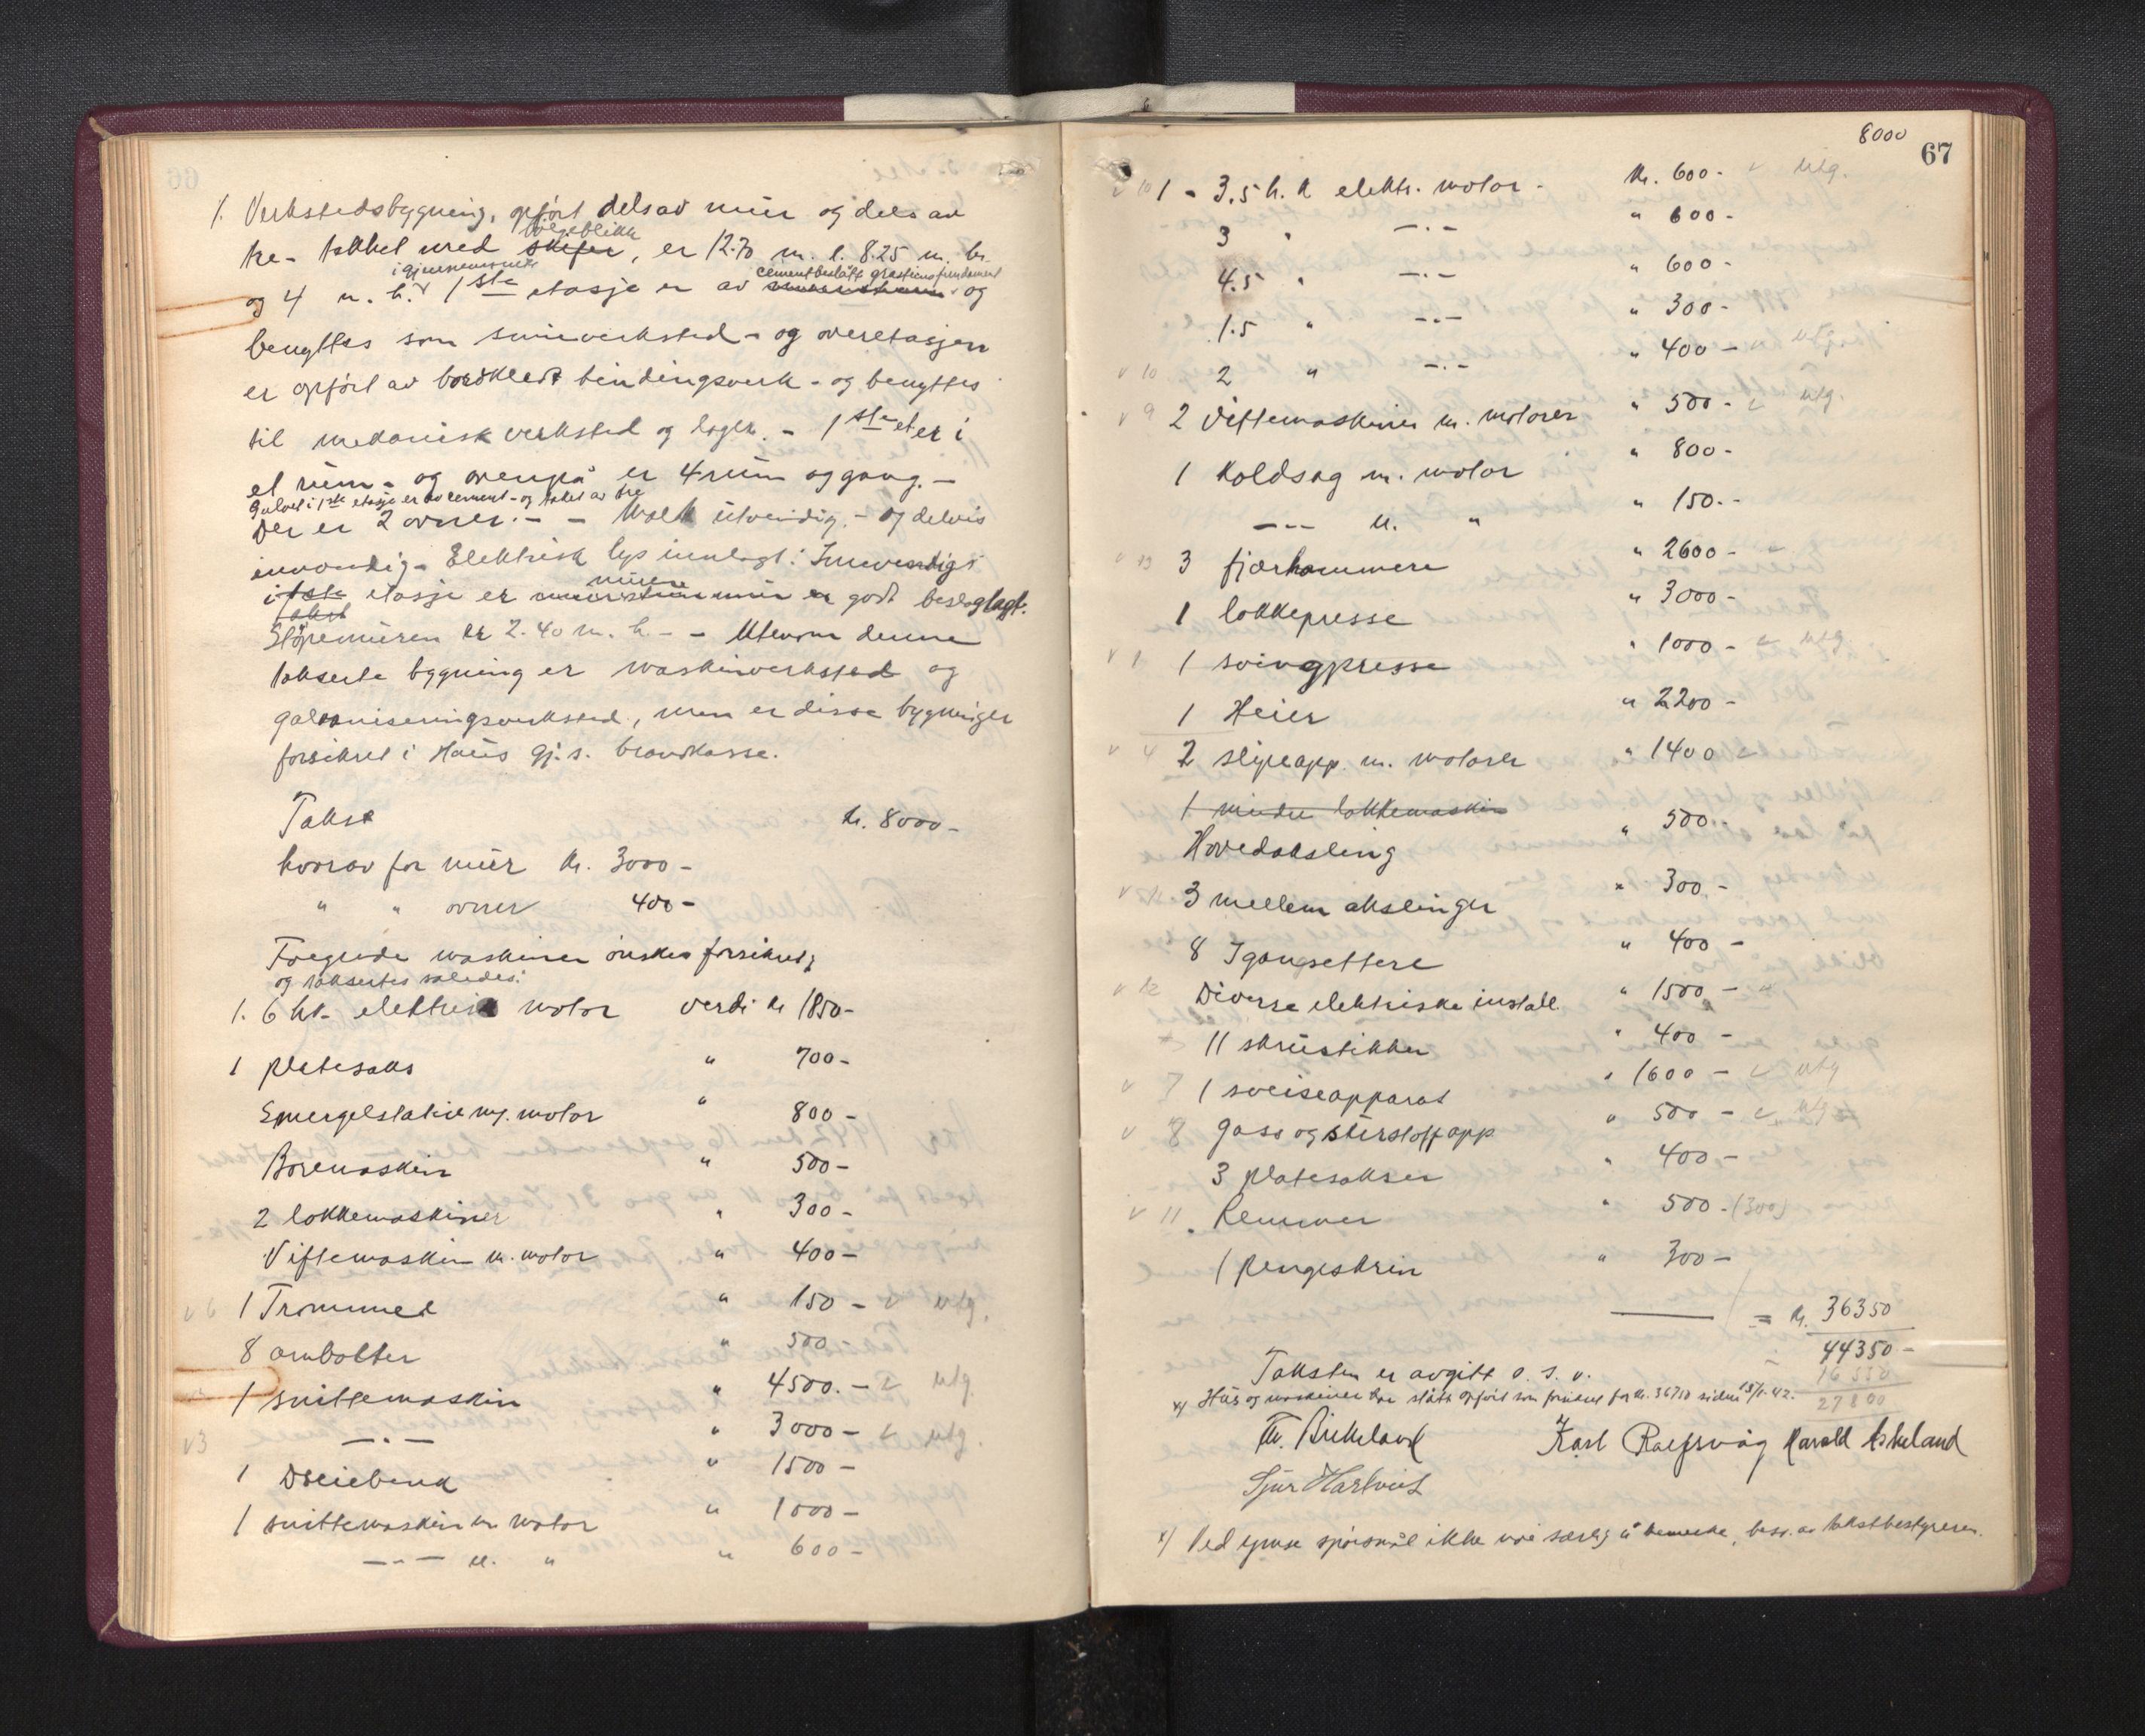 1. Verkstedsbygning, opført dels av mur og dels av
tre - tekket med skifer, er 12.70 m. l. 8.25 m. br.
bølgeblikk
i gjennemsnitt
cementbeslått gråstensfundament
og 4 m. h. 1ste etasje er av og
benyttes som smieverksted - og overetasjen
er opført av bordkledt bindingsverk - og benyttes
til mekanisk verksted og lager. - 1ste et er i
et rum - og ovenpå er 4 rum og gang. -
Gulvet i 1ste etasje er av cement - og taket av tre
Der er 2 ovner. - - Malt utvendig. - og delvis
invendig - Elektrisk lys innlagt. Innvendig
i 1ste etasje er murene godt beslaglagt.
taket
Støpemuren er 2.40 m. h. - - Utenom denne
takserte bygning er maskinverksted og
galvaniseringsverksted, men er disse bygninger
forsikret i Haus gj. s. brandkasse.
Takst kr. 8000 -
hvorav for mur kr. 3000 -
" " ovner 400 -
Følgende maskiner ønskes forsikret,
og takseres således:
1. 6 hk. elektrisk motor verdi kr 1850 -
1 platesaks " 700 -
Smergelstativ m. motor " 800 -
Boremaskin " 500 -
2 lokkemaskiner " 300 -
Viftemaskin m. motor " 400 -
v 6 1 Trommel " 150 - v utg.
8 ambolter " 500 -
1 snittemaskin " 4500. - v utg.
v 3 — . — " 3000 - v utg.
1 Dreiebenk " 1500 -
1 snittemaskin m motor " 1000 -
— " — u. " " 600 -
8000
67
v 10 1 - 3.5 h. k elektr. motor - kr. 600 - v utg.
3 " — . — " 600 -
4.5 " — . — " 600 -
1.5 " — . — " 300 -
v 10 2 " — . — " 400 - v utg.
v 9 2 Viftemaskiner m. motorer " 500 - v utg.
1 Koldsag m. motor " 800 -
— " — u. " " 150. -
v 13 3 fjærhammere " 2600 - v
1 lokkepresse " 3000 -
v 1 1 svingpresse " 1000 - v utg
1 Heier " 2200 -
v 4 2 slipeapp. m. motorer " 1400 v
1 mindre lokkemaskin
Hovedaksling " 500 -
3 mellem akslinger " 300 -
8 Igangsettere " 400 -
v 12 Diverse elektriske install. " 1500 - v
11 skrustikker " 400 -
v 7 1 sveiseapparat " 1600 - v utg
v 8 gass og surstoffapp " 500 - v utg
3 platesakser " 400 -
v 11 Remmer " 500 - (300)
1 pengeskrin " 300 -
= kr. 36350
44350 -
16550
27800
Taksten er avgitt o. s. v.
x) Hus og maskiner har stått opført som forsikret for kr. 36750 siden 15/1. 42.
Th. Birkeland Karl Raefsvåg Harald Askeland
Sjur Hartveit
x) Ved egense spørsmål ikke noe særlig å bemerke, besv. av takstbestyreren.